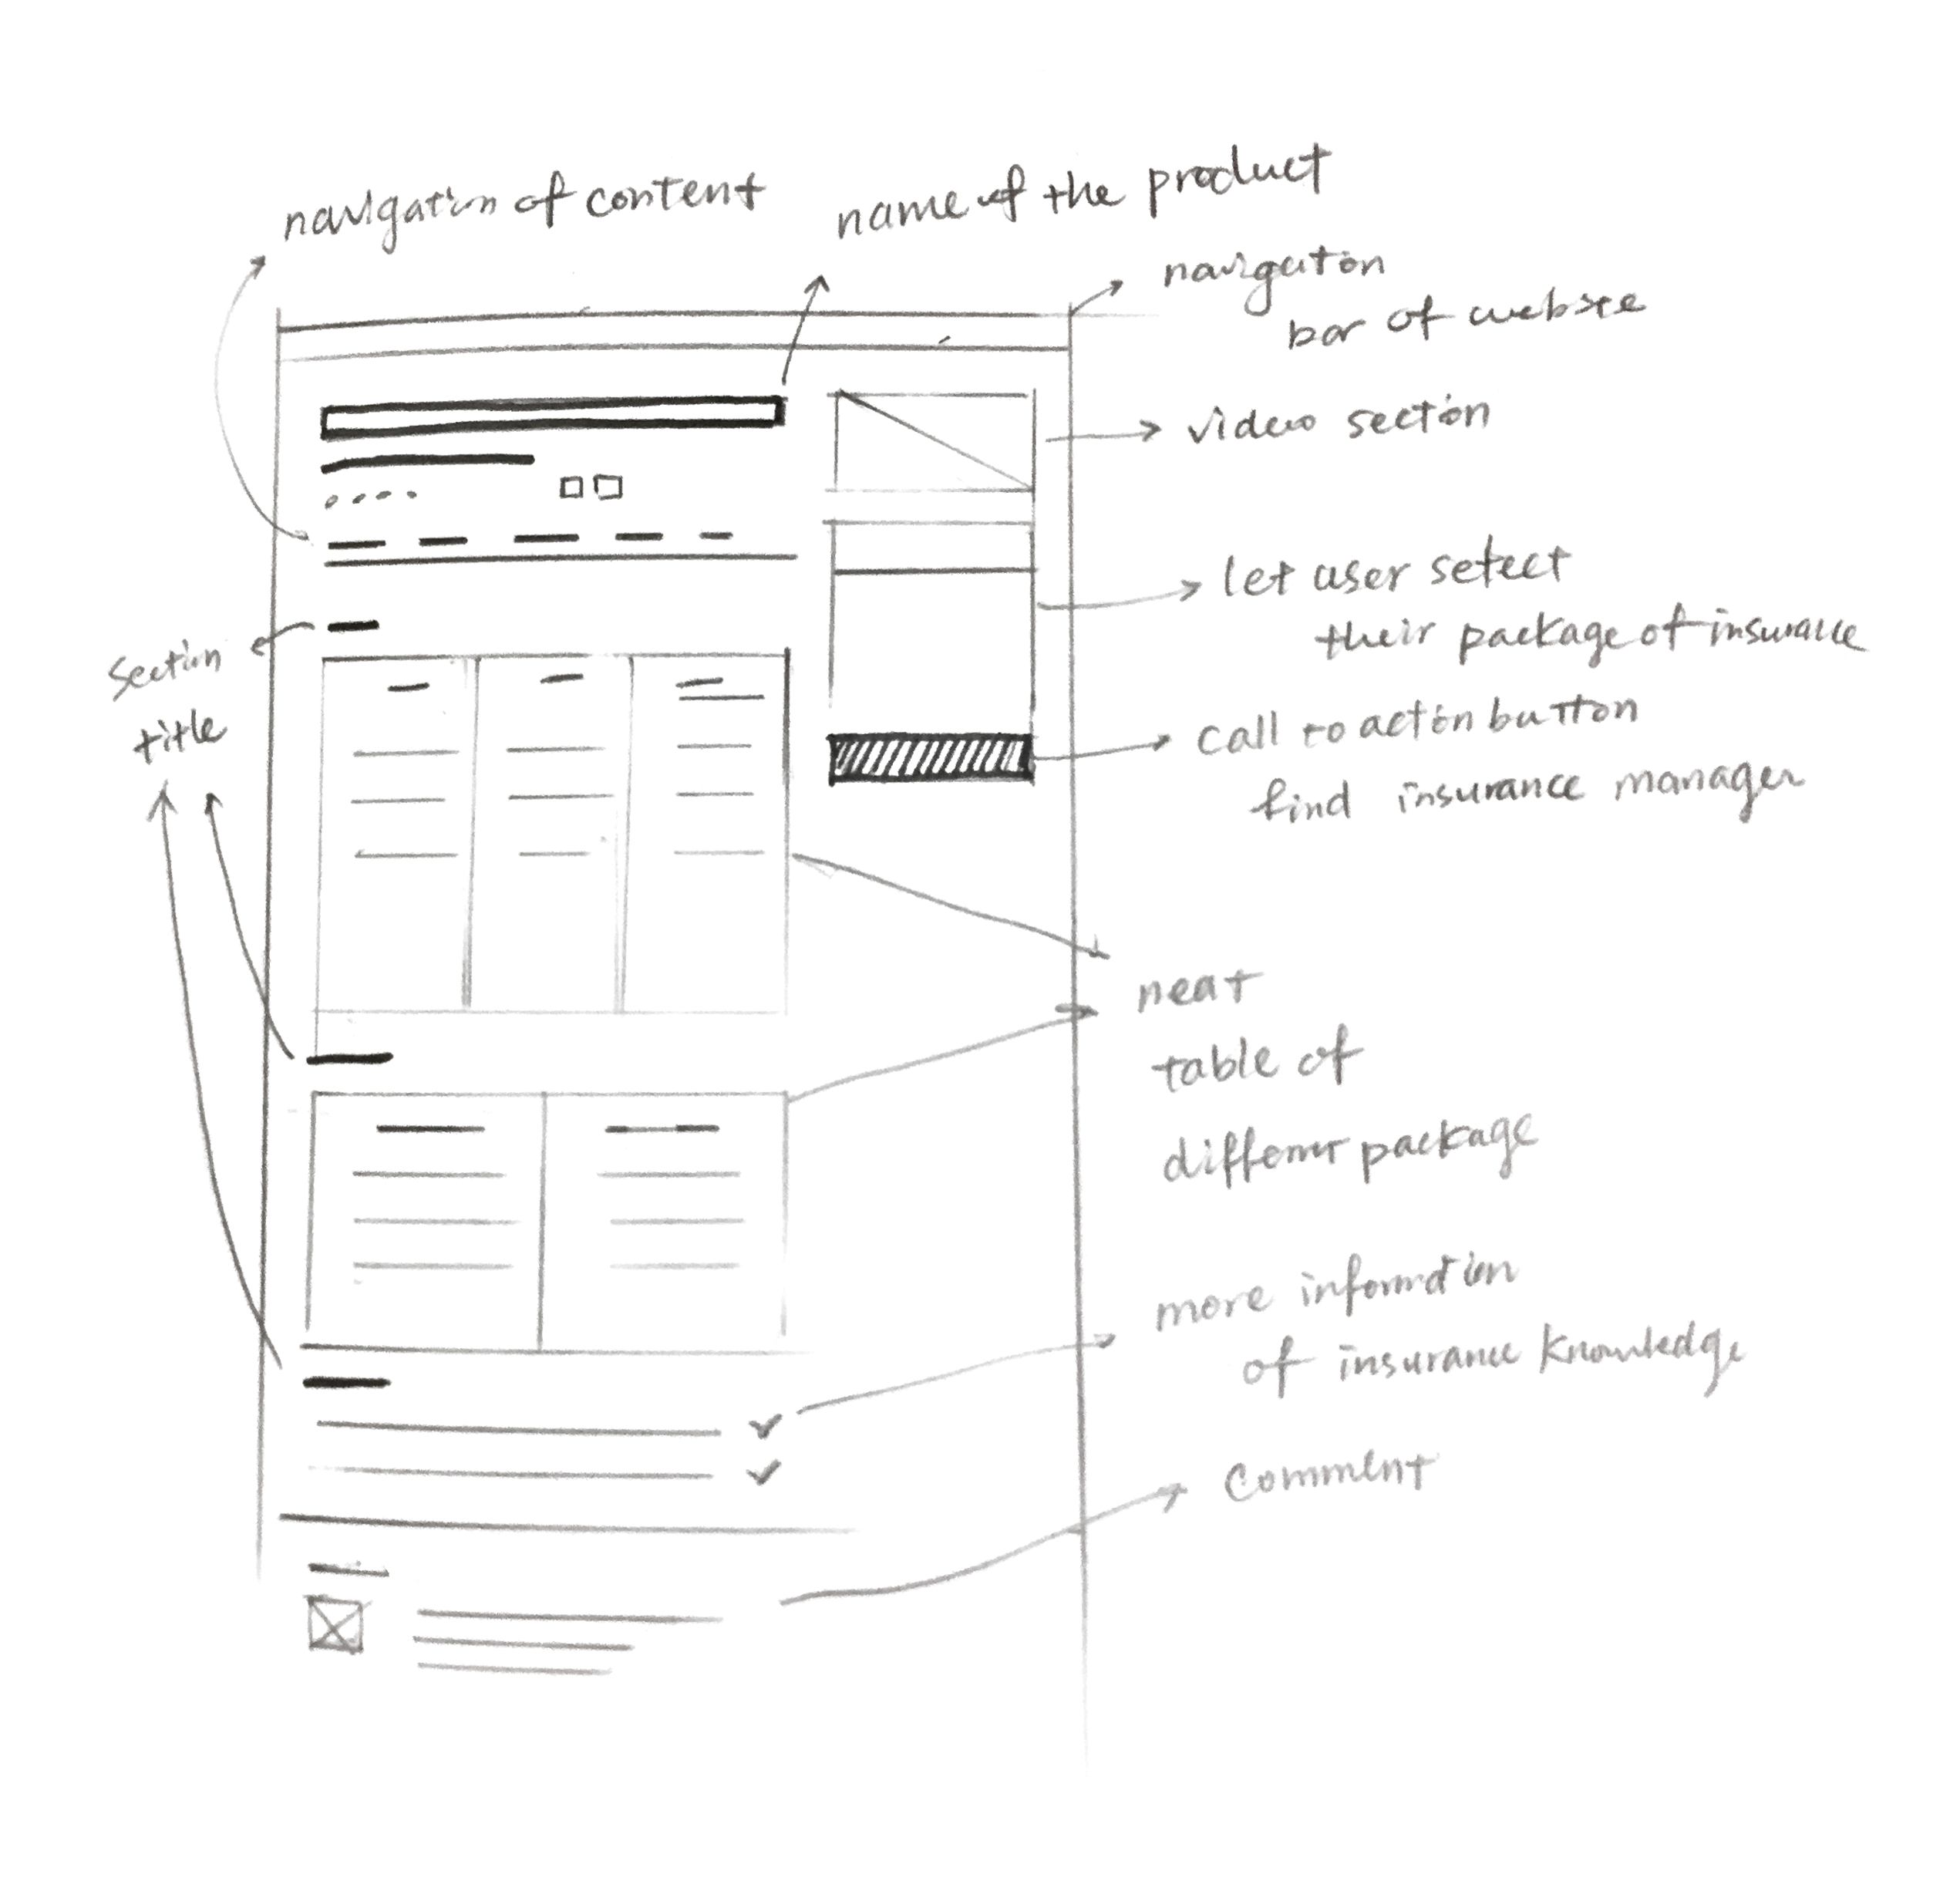 navigation of content
name of the product
navigation
bar of website
video section
let user select
their package of insurance
section
title
call to action button
find insurance manager
neat
table of
different package
more information
of insurance knowledge
comment